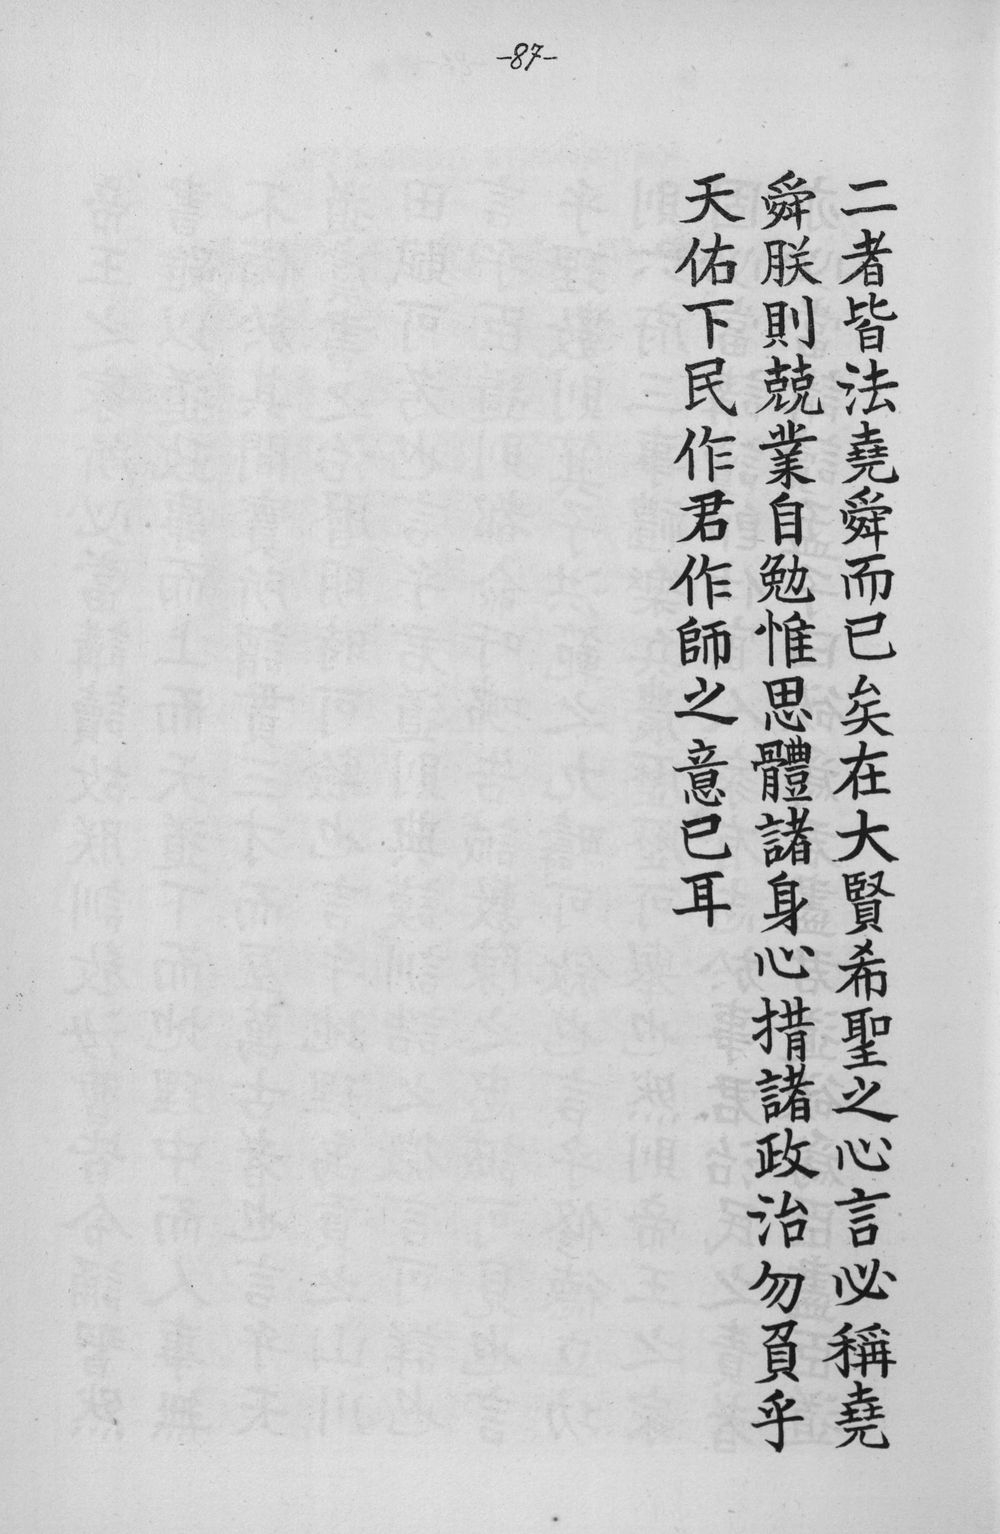 -87-
二者皆法堯舜而已矣在大賢希聖之心言必稱堯
舜朕則兢業自勉惟思體諸身心措諸政治勿負乎
天佑下民作君作師之意已耳